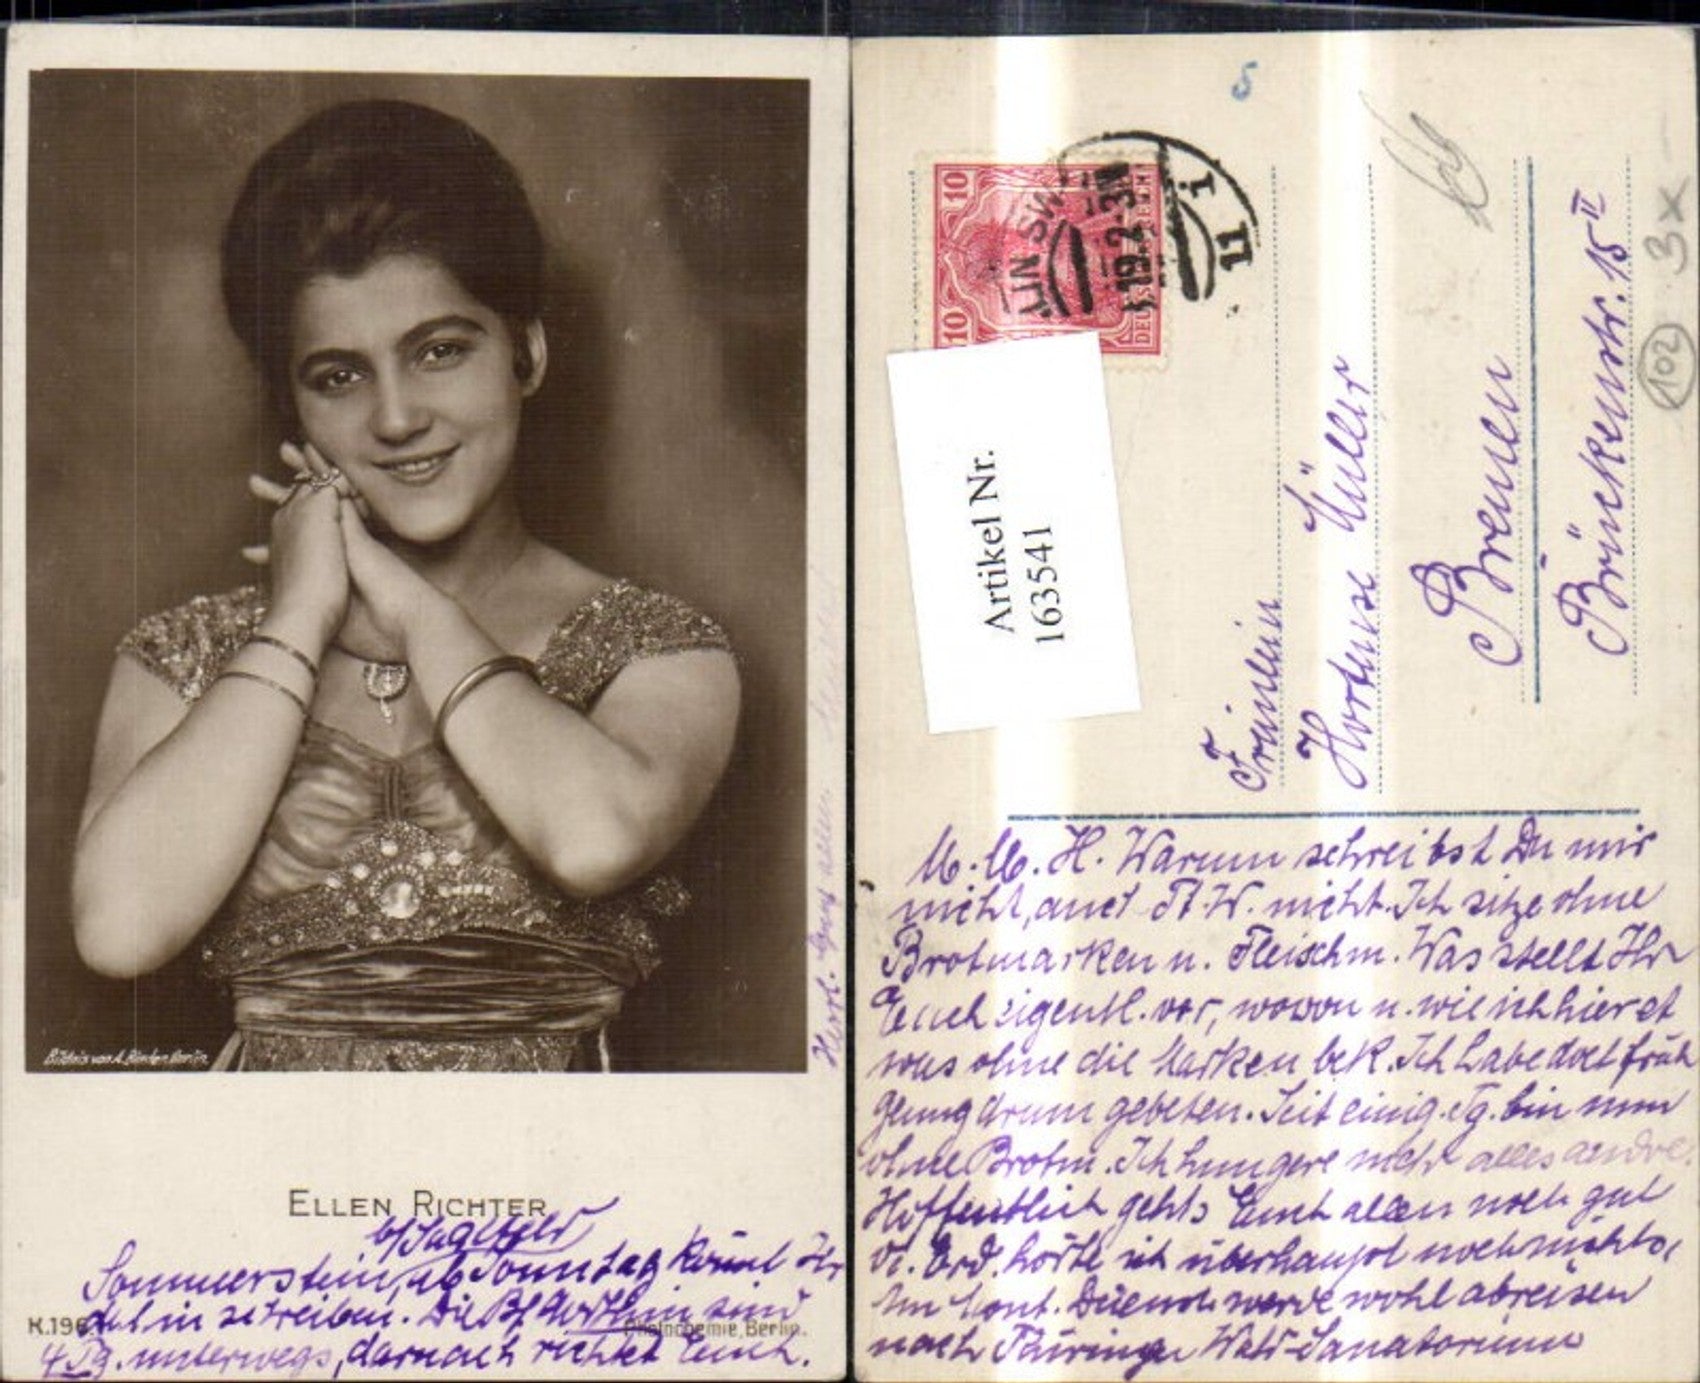 Bildnis von A. Binder, Berlin.
ELLEN RICHTER
K.196
Photochemie, Berlin.
b/Saalfeld
Sommerstein, ab Sonntag könnt Ihr
dahin schreiben. Die Bf dorthin sind
4 Tg. unterwegs, darnach richtet Euch.
Herzl. Gruß allen
5
10 10
LIN SW
19.2. 3-4N
11
Artikel Nr.
163541
Fräulein
Hortense Müller
Bremen
Brückenstr. 15 II
102 3x
M. H. Warum schreibst Du mir
nicht, auch W. nicht. Ich sitze ohne
Brotmarken u. Fleischm. Was stellt Ihr
Euch eigentl. vor, wovon u. wie ich hier et
was ohne die Marken bek. Ich habe doch früh
genug drum gebeten. Seit einig. Tg. bin nun
ohne Brotm. Ich hungere mehr alles andre.
Hoffentlich gehts Euch allen noch gut
v. hörte ich überhaupt noch nichts,
Am werde wohl abreisen
nach Thüringen Wald-Sanatorium